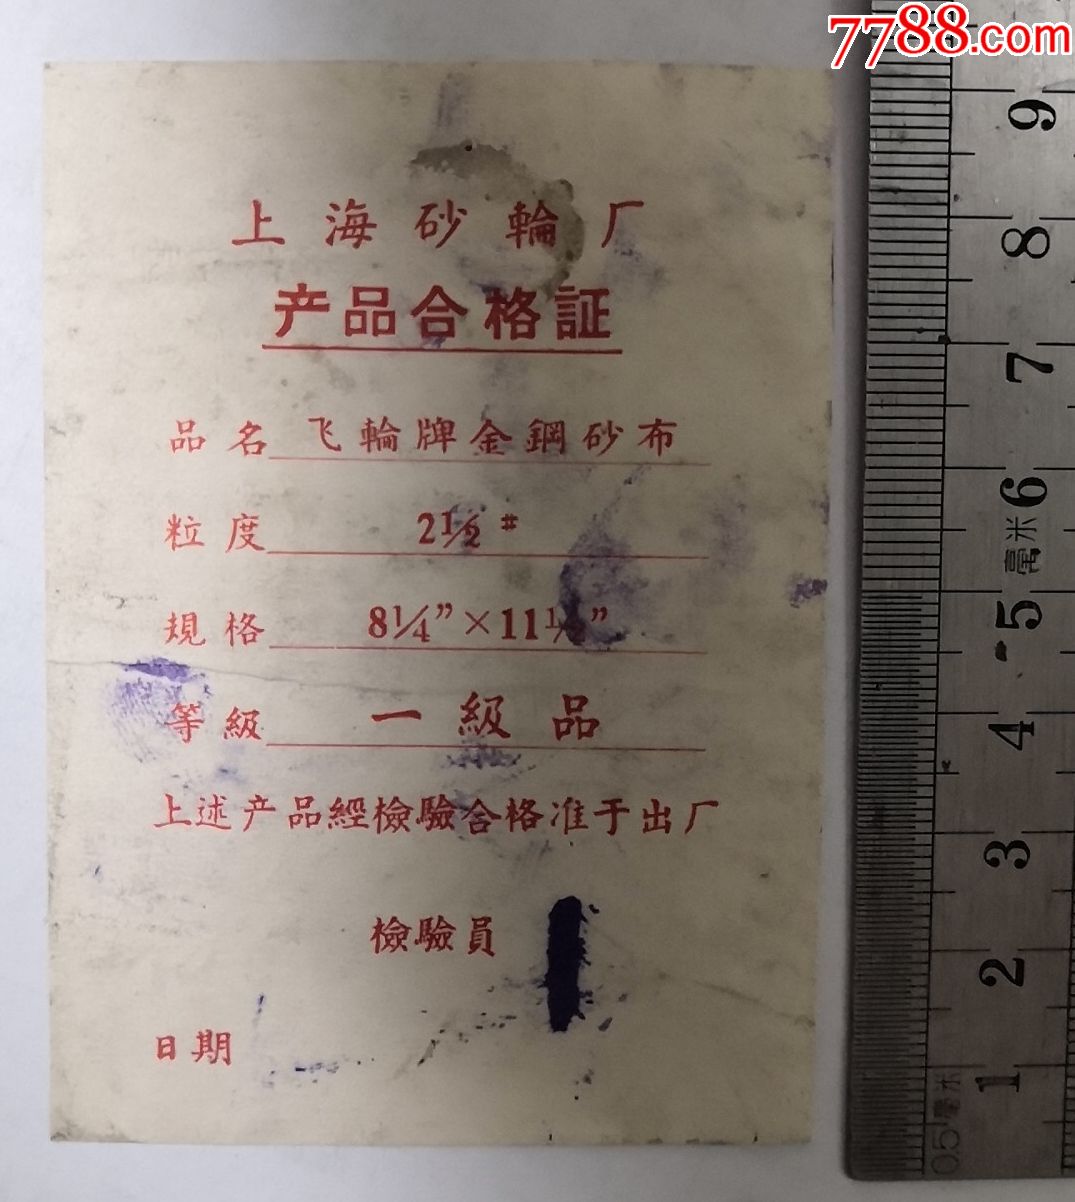 7788.com
上海砂輪厂
产品合格証
品名 飞輪牌金鋼砂布
粒度 2½ #
規格 8¼”×11½”
等級 一級品
上述产品經檢驗合格准于出厂
檢驗員
日期
9
8
7
6
毫米
5
4
3
2
1
0.5毫米